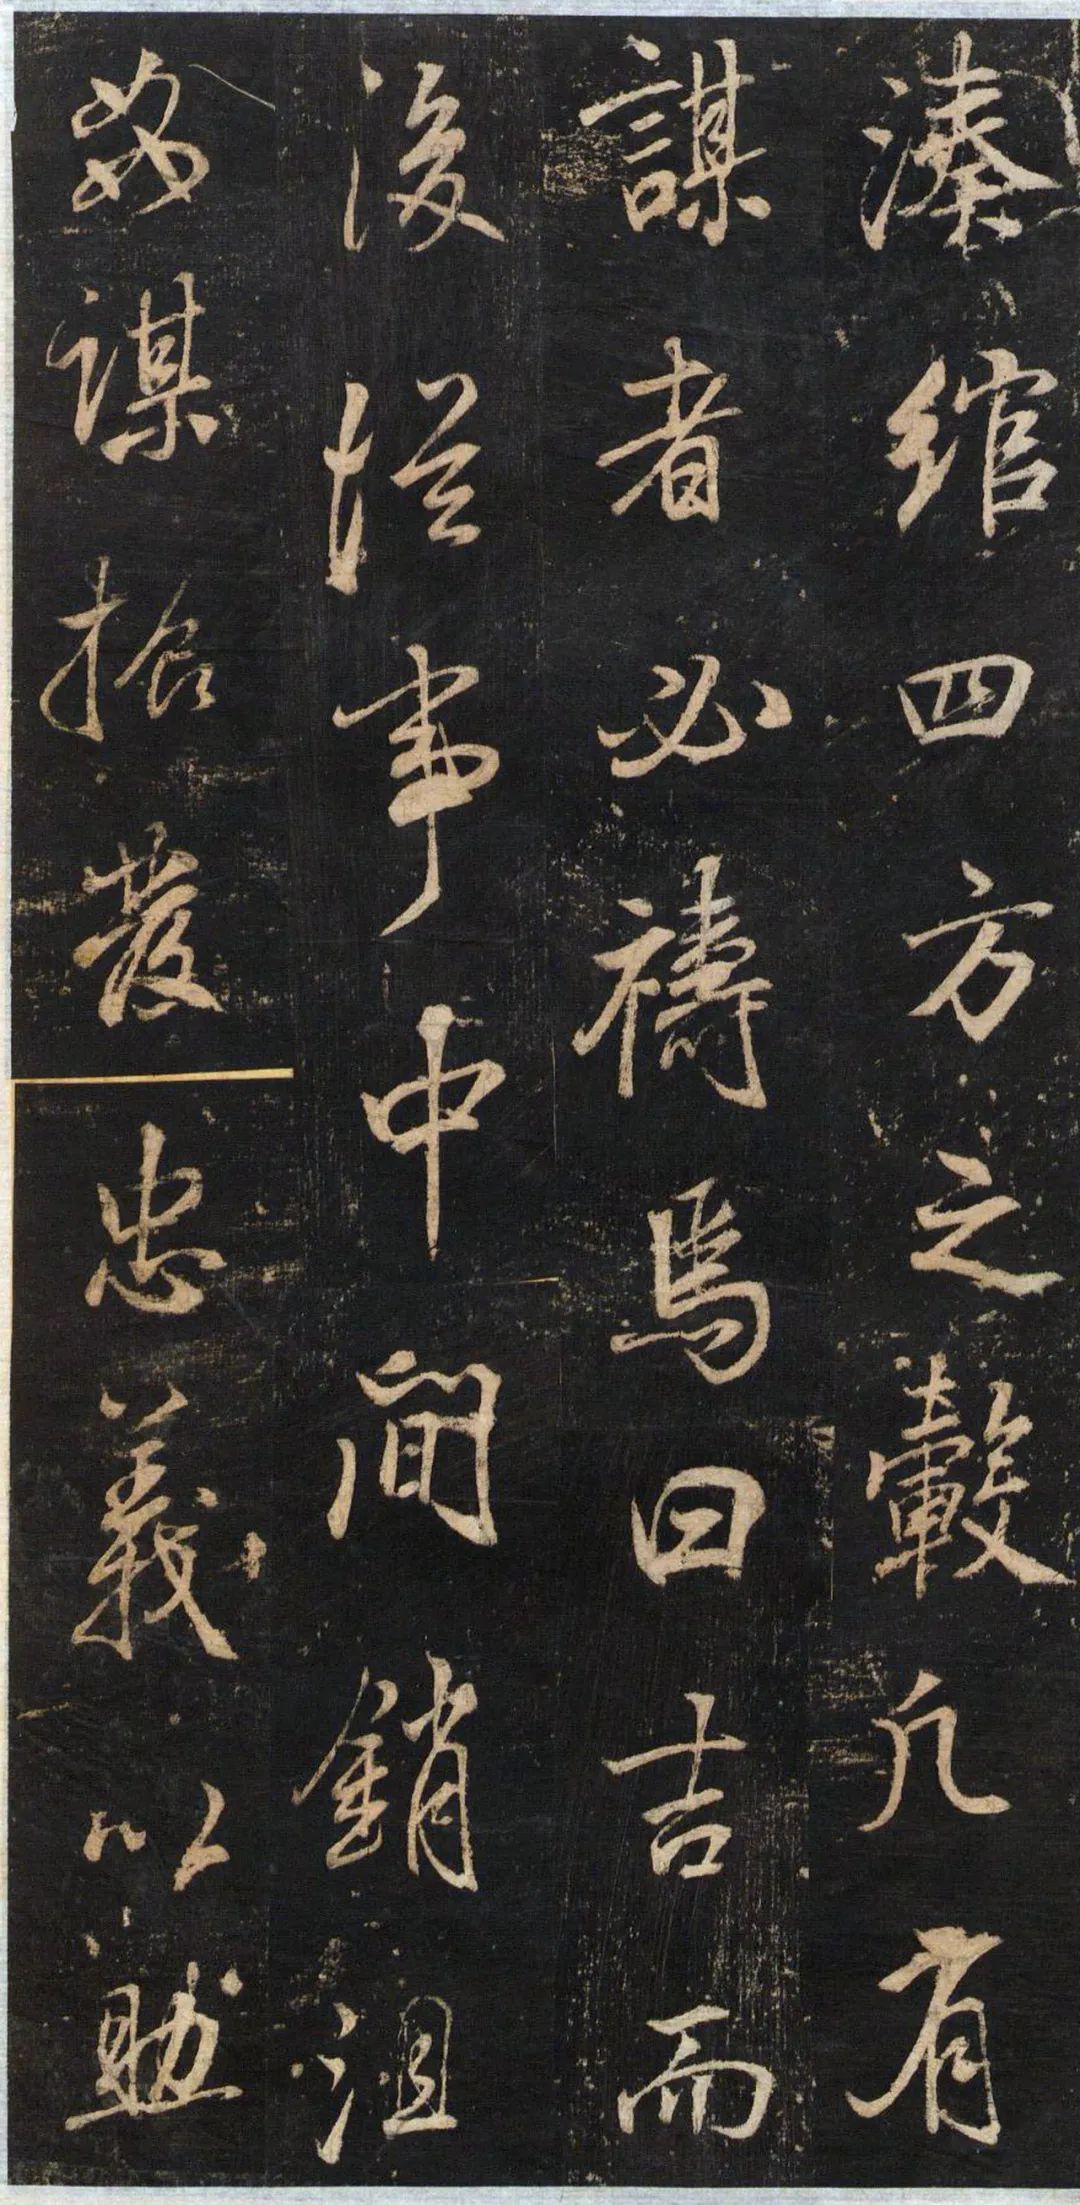 湊綰四方之轂凡有
謀者必禱焉曰吉而
後從事中間銷沮
姦謀振發忠義以助